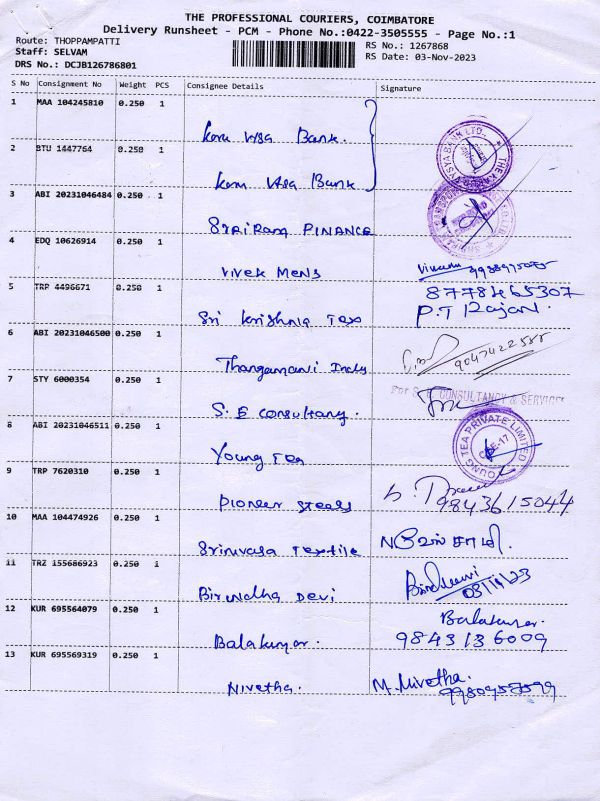 THE PROFESSIONAL COURIERS, COIMBATORE
Delivery Runsheet - PCM - Phone No.:0422-3505555 - Page No.:1
Route: THOPPAMPATTI
Staff: SELVAM
DRS No.: DCJB126786801
RS No.: 1267868
RS Date: 03-Nov-2023
S No Consignment No Weight PCS Consignee Details Signature
1 MAA 104245810 0.250 1
Karur Vysa Bank.
2 BTU 1447764 0.250 1
Karur Vysa Bank
3 ABI 20231046484 0.250 1
SriRam FINANCE
4 EDQ 10626914 0.250 1
Vivek Mens
5 TRP 4496671 0.250 1 8778465307
Sri Krishnia Tex P.T Rajan.
6 ABI 20231046500 0.250 1
Thangamani Indy 9047422585
7 STY 6000354 0.250 1 CONSULTANCY & SERVICES
S. E Consultancy.
8 ABI 20231046511 0.250 1 YOUNG TEA PRIVATE LIMITED
Young Tea CBE-17
9 TRP 7620310 0.250 1
Pioneer Steels 9843615044
10 MAA 104474926 0.250 1
Srinivasa Textile
11 TRZ 155686923 0.250 1
Birundha Devi 03/11/23
12 KUR 695564079 0.250 1 Balakumar.
Balakumar. 9843136009
13 KUR 695569319 0.250 1
Nivetha. M. Nivetha.